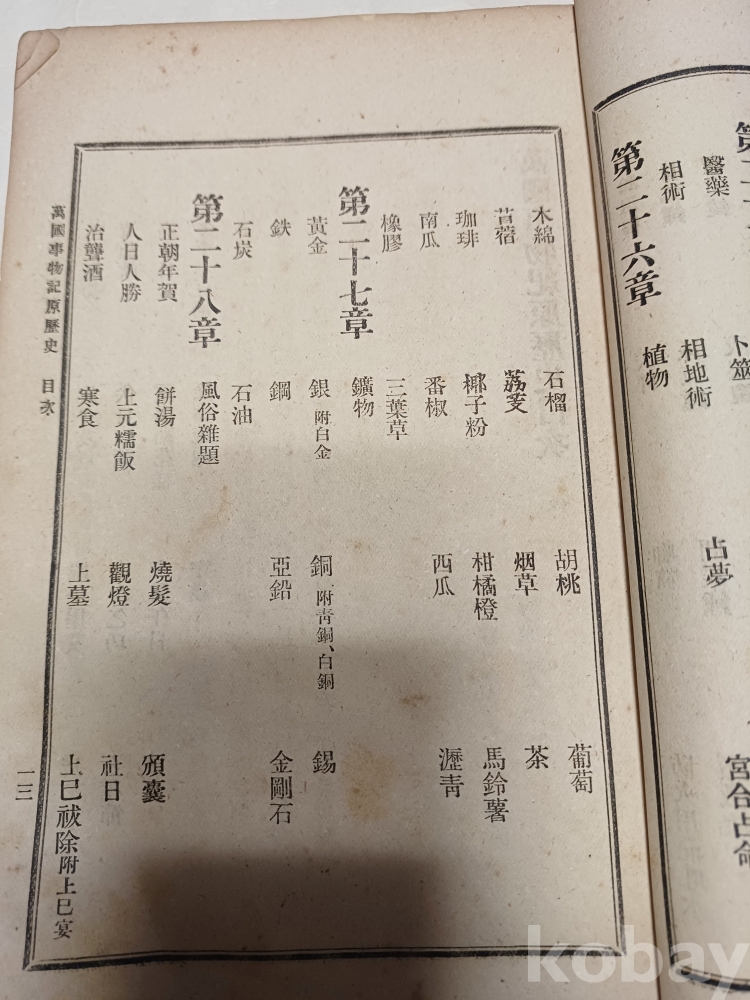 醫藥 卜筮 占夢 宮合占命
相術 相地術
第二十六章 植物
木綿 石榴 胡桃 葡萄
苜蓿 荔芰 烟草 茶
珈琲 椰子粉 柑橘橙 馬鈴薯
南瓜 番椒 西瓜 瀝青
橡膠 三葉草
第二十七章 鑛物
黃金 銀附白金 銅附靑銅、白銅 錫
鉄 鋼 亞鉛 金剛石
石炭 石油
第二十八章 風俗雜題
正朝年賀 餠湯 燒髮 頒囊
人日人勝 上元糯飯 觀燈 社日
治聾酒 寒食 上墓 上巳祓除附上巳宴
萬國事物記原歷史 目次 一三
kobay